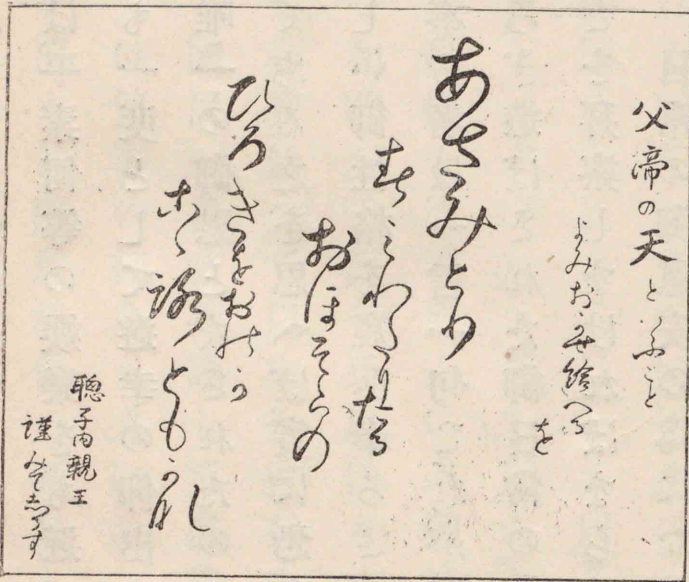 父帝の天といふこと
よみおかせ給へる
を
あさみとり
すみわたりたる
おほそらの
ひろきをおのか
こゝ路ともかな
聰子内親王
謹みてしるす